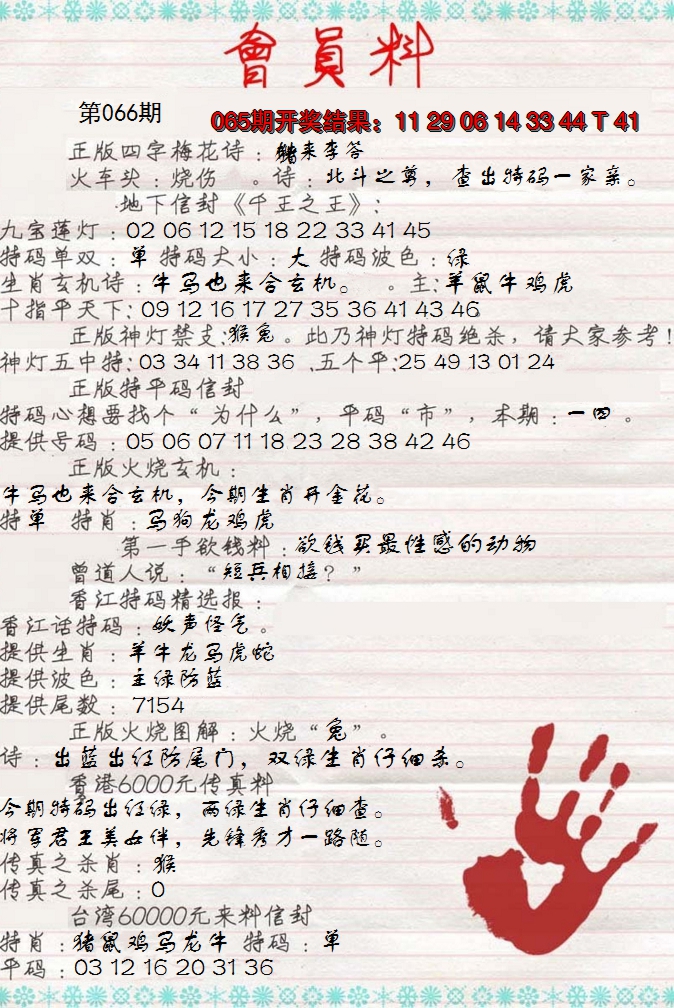 會員料
第066期
065期开奖结果：11 29 06 14 33 44 T 41
正版四字梅花诗：猪来李答
火车头：烧伤 。诗：北斗之尊，查出特码一家亲。
地下信封《千王之王》：
九宝莲灯：02 06 12 15 18 22 33 41 45
特码单双：单 特码大小：大 特码波色：绿
生肖玄机诗：牛马也来合玄机。 。主：羊鼠牛鸡虎
十指平天下：09 12 16 17 27 35 36 41 43 46
正版神灯禁支：猴兔。此乃神灯特码绝杀，请大家参考！
神灯五中特：03 34 11 38 36 .五个平：25 49 13 01 24
正版特平码信封
特码心想要找个“为什么”，平码“市”，本期：一四。
提供号码：05 06 07 11 18 23 28 38 42 46
正版火烧玄机：
牛马也来合玄机，今期生肖开金花。
特单 特肖：马狗龙鸡虎
第一手欲钱料：欲钱买最性感的动物
曾道人说：“短兵相接？”
香江特码精选报：
香江话特码：妖声怪气。
提供生肖：羊牛龙马虎蛇
提供波色：主绿防蓝
提供尾数：7154
正版火烧图解：火烧“兔”。
诗：出蓝出红防尾门，双绿生肖仔细杀。
香港6000元传真料
今期特码出红绿，两绿生肖仔细查。
将军君王美女伴，先锋秀才一路随。
传真之杀肖：猴
传真之杀尾：0
台湾60000元来料信封
特肖：猪鼠鸡马龙牛 特码：单
平码：03 12 16 20 31 36